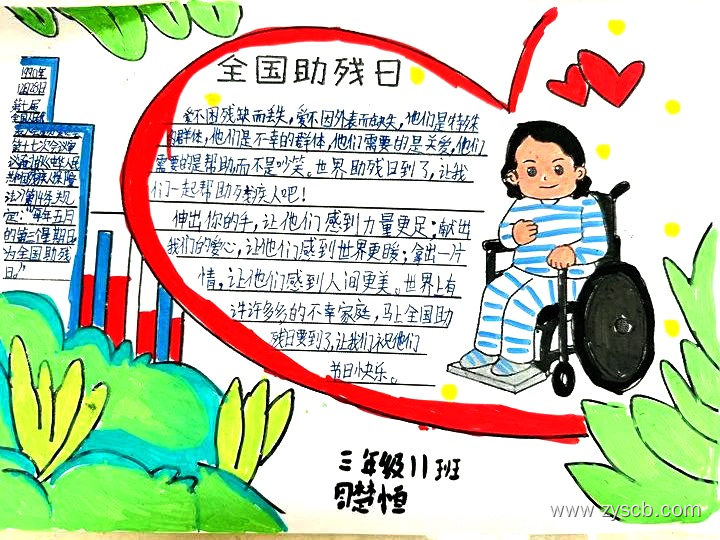 全国助残日
1990年
12月28日
第七届
全国人民
第十七次会议审
议通过《中华人民
共和国残疾人保障
法》第14条规
定:“每年五月
的第三个星期日
为全国助残
日。”
爱不因残缺而丢失,爱不因外表而缺失,他们是特殊
的群体,他们是不幸的群体,他们需要的是关爱,他们
需要的是帮助,而不是吵笑。世界助残日到了,让我
们一起帮助残疾人吧!
伸出你的手,让他们感到力量更足;献出
我们的爱心,让他们感到世界更暖;拿出一片
情,让他们感到人间更美。世界上有
许许多多的不幸家庭,马上全国助
残日要到了,让我们祝他们
节日快乐。
三年级11班
楚恒
www.zyscb.com